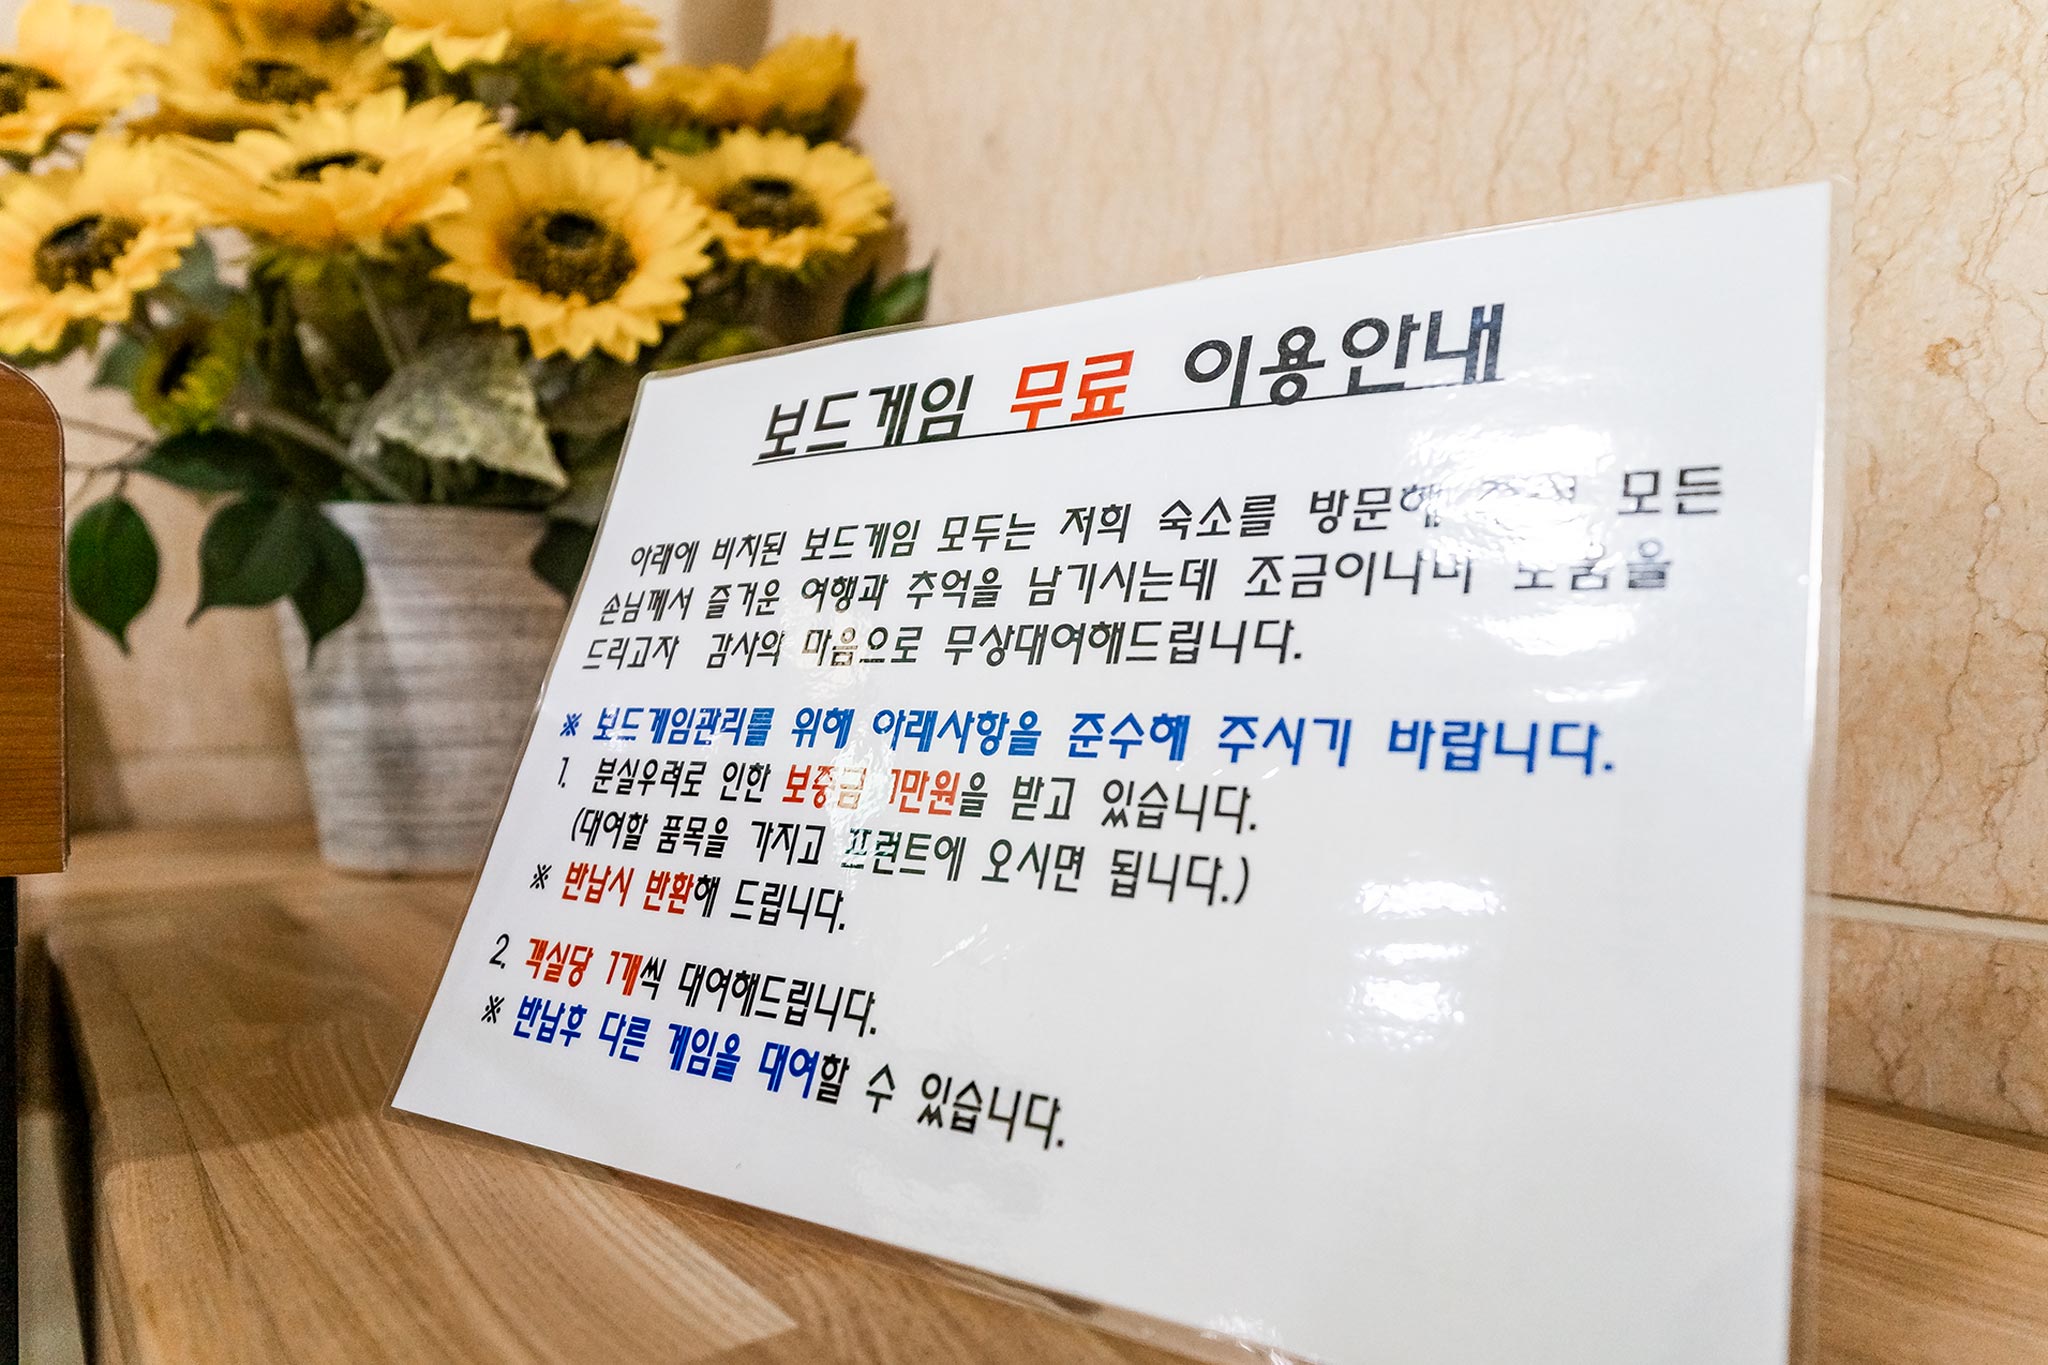 보드게임 무료 이용안내
아래에 비치된 보드게임 모두는 저희 숙소를 방문해 모든
손님께서 즐거운 여행과 추억을 남기시는데 조금이나마 도움을
드리고자 감사의 마음으로 무상대여해드립니다.
※ 보드게임관리를 위해 아래사항을 준수해 주시기 바랍니다.
1. 분실우려로 인한 보증금 1만원을 받고 있습니다.
(대여할 품목을 가지고 프런트에 오시면 됩니다.)
※ 반납시 반환해 드립니다.
2. 객실당 1개씩 대여해드립니다.
※ 반납후 다른 게임을 대여할 수 있습니다.